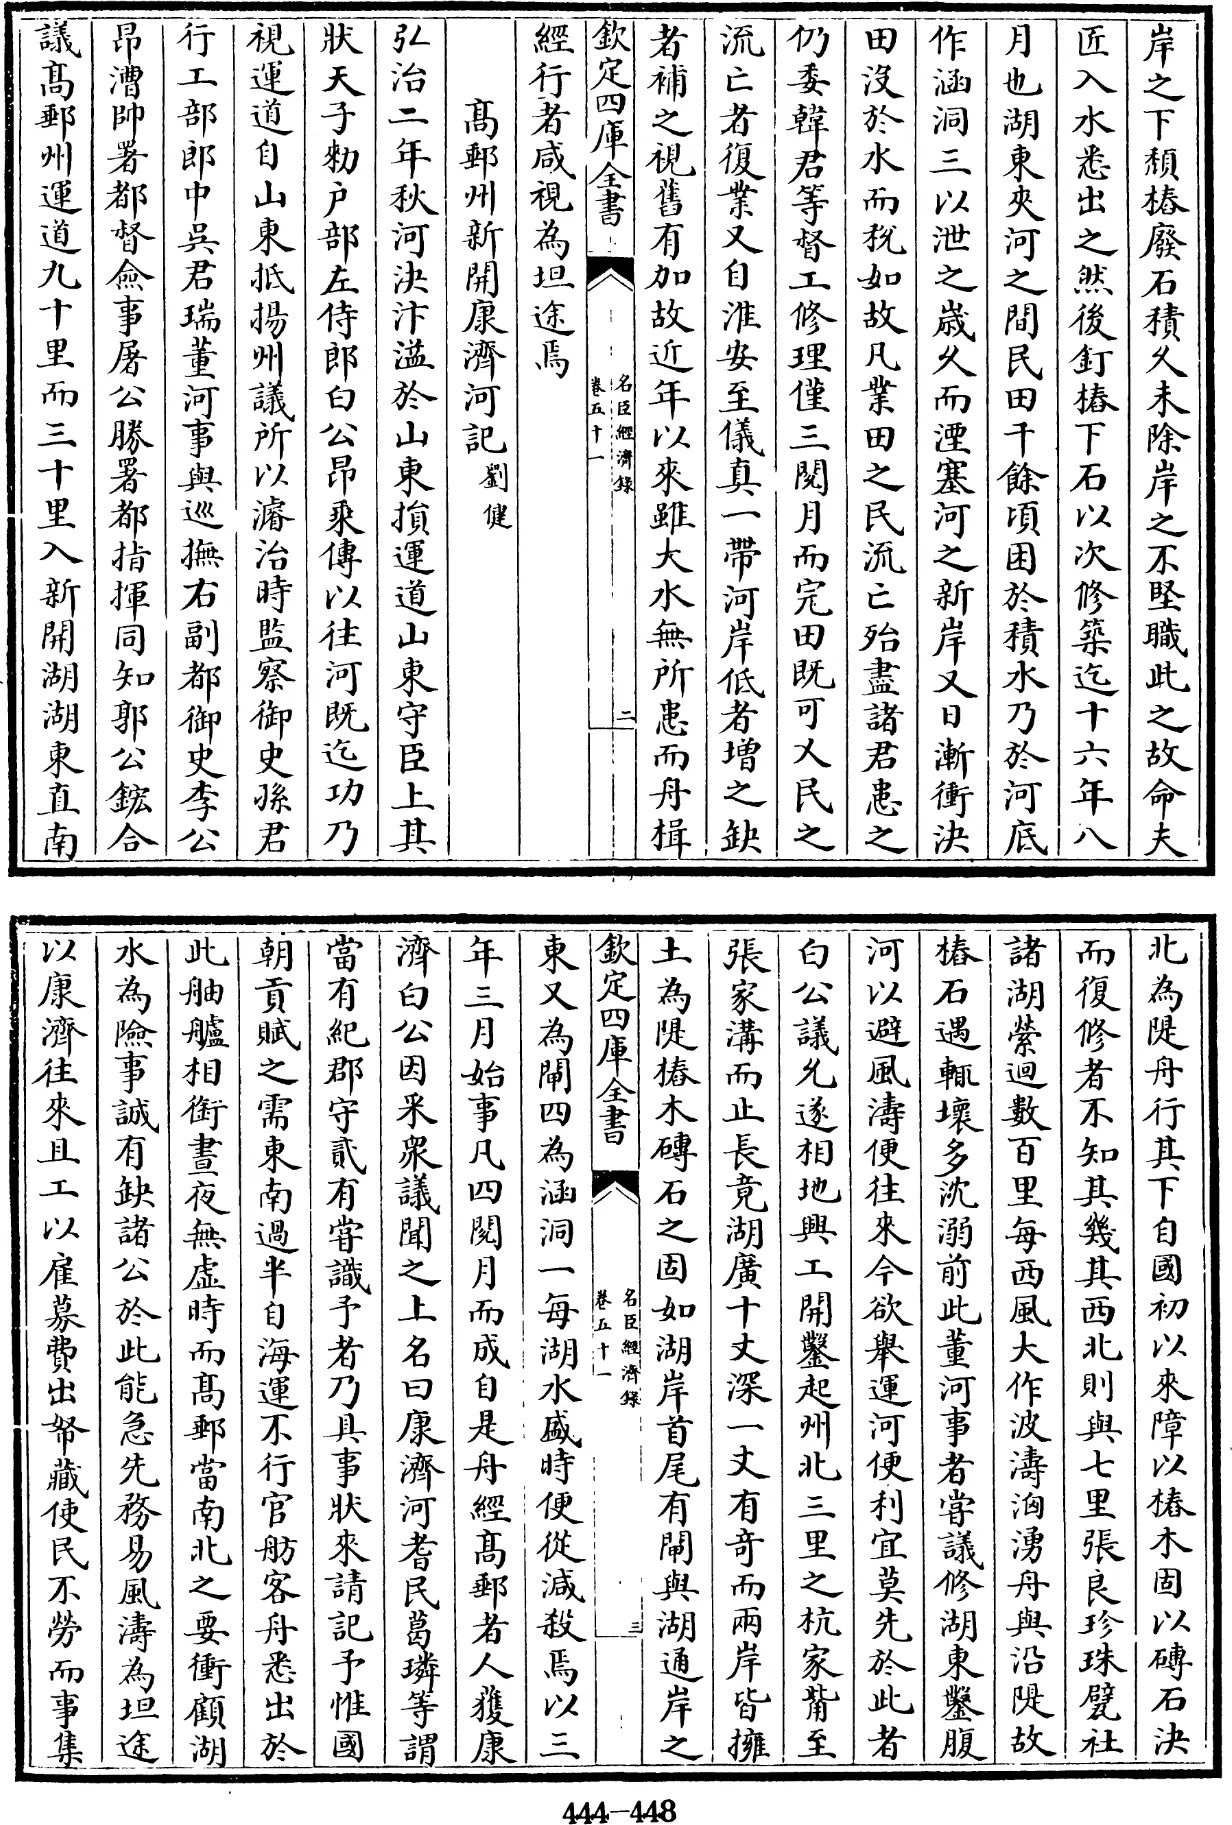 岸之下頹樁廢石積久未除岸之不堅職此之故命夫
匠入水悉出之然後釘樁下石以次修築迄十六年八
月也湖東夾河之間民田千餘頃困於積水乃於河底
作涵洞三以泄之歲久而湮塞河之新岸又日漸衝決
田沒於水而稅如故凡業田之民流亡殆盡諸君患之
仍委韓君等督工修理僅三閱月而完田既可乂民之
流亡者復業又自淮安至儀真一帶河岸低者增之缺
者補之視舊有加故近年以來雖大水無所患而舟楫
欽定四庫全書
名臣經濟錄
卷五十一
二
經行者咸視為坦途焉
高郵州新開康濟河記 劉健
弘治二年秋河決汴溢於山東損運道山東守臣上其
狀天子勑户部左侍郎白公昂乘傳以往河既迄功乃
視運道自山東抵揚州議所以濬治時監察御史孫君
行工部郎中吳君瑞董河事與巡撫右副都御史李公
昂漕帥署都督僉事屠公勝署都指揮同知郭公鋐合
議高郵州運道九十里而三十里入新開湖湖東直南
北為隄舟行其下自國初以來障以樁木固以磚石決
而復修者不知其幾其西北則與七里張良珍珠甓社
諸湖縈迴數百里每西風大作波濤洶湧舟與沿隄故
樁石遇輒壞多沈溺前此董河事者嘗議修湖東鑿腹
河以避風濤便往來今欲舉運河便利宜莫先於此者
白公議允遂相地興工開鑿起州北三里之杭家觜至
張家溝而止長竟湖廣十丈深一丈有奇而兩岸皆擁
土為隄樁木磚石之固如湖岸首尾有閘與湖通岸之
欽定四庫全書
名臣經濟錄
卷五十一
三
東又為閘四為涵洞一每湖水盛時便從減殺焉以三
年三月始事凡四閱月而成自是舟經高郵者人獲康
濟白公因采衆議聞之上名曰康濟河耆民葛璘等謂
當有紀郡守貳有嘗識予者乃具事狀來請記予惟國
朝貢賦之需東南過半自海運不行官舫客舟悉出於
此舳艫相銜晝夜無虛時而高郵當南北之要衝顧湖
水為險事誠有缺諸公於此能急先務易風濤為坦途
以康濟往來且工以雇募費出帑藏使民不勞而事集
444-448